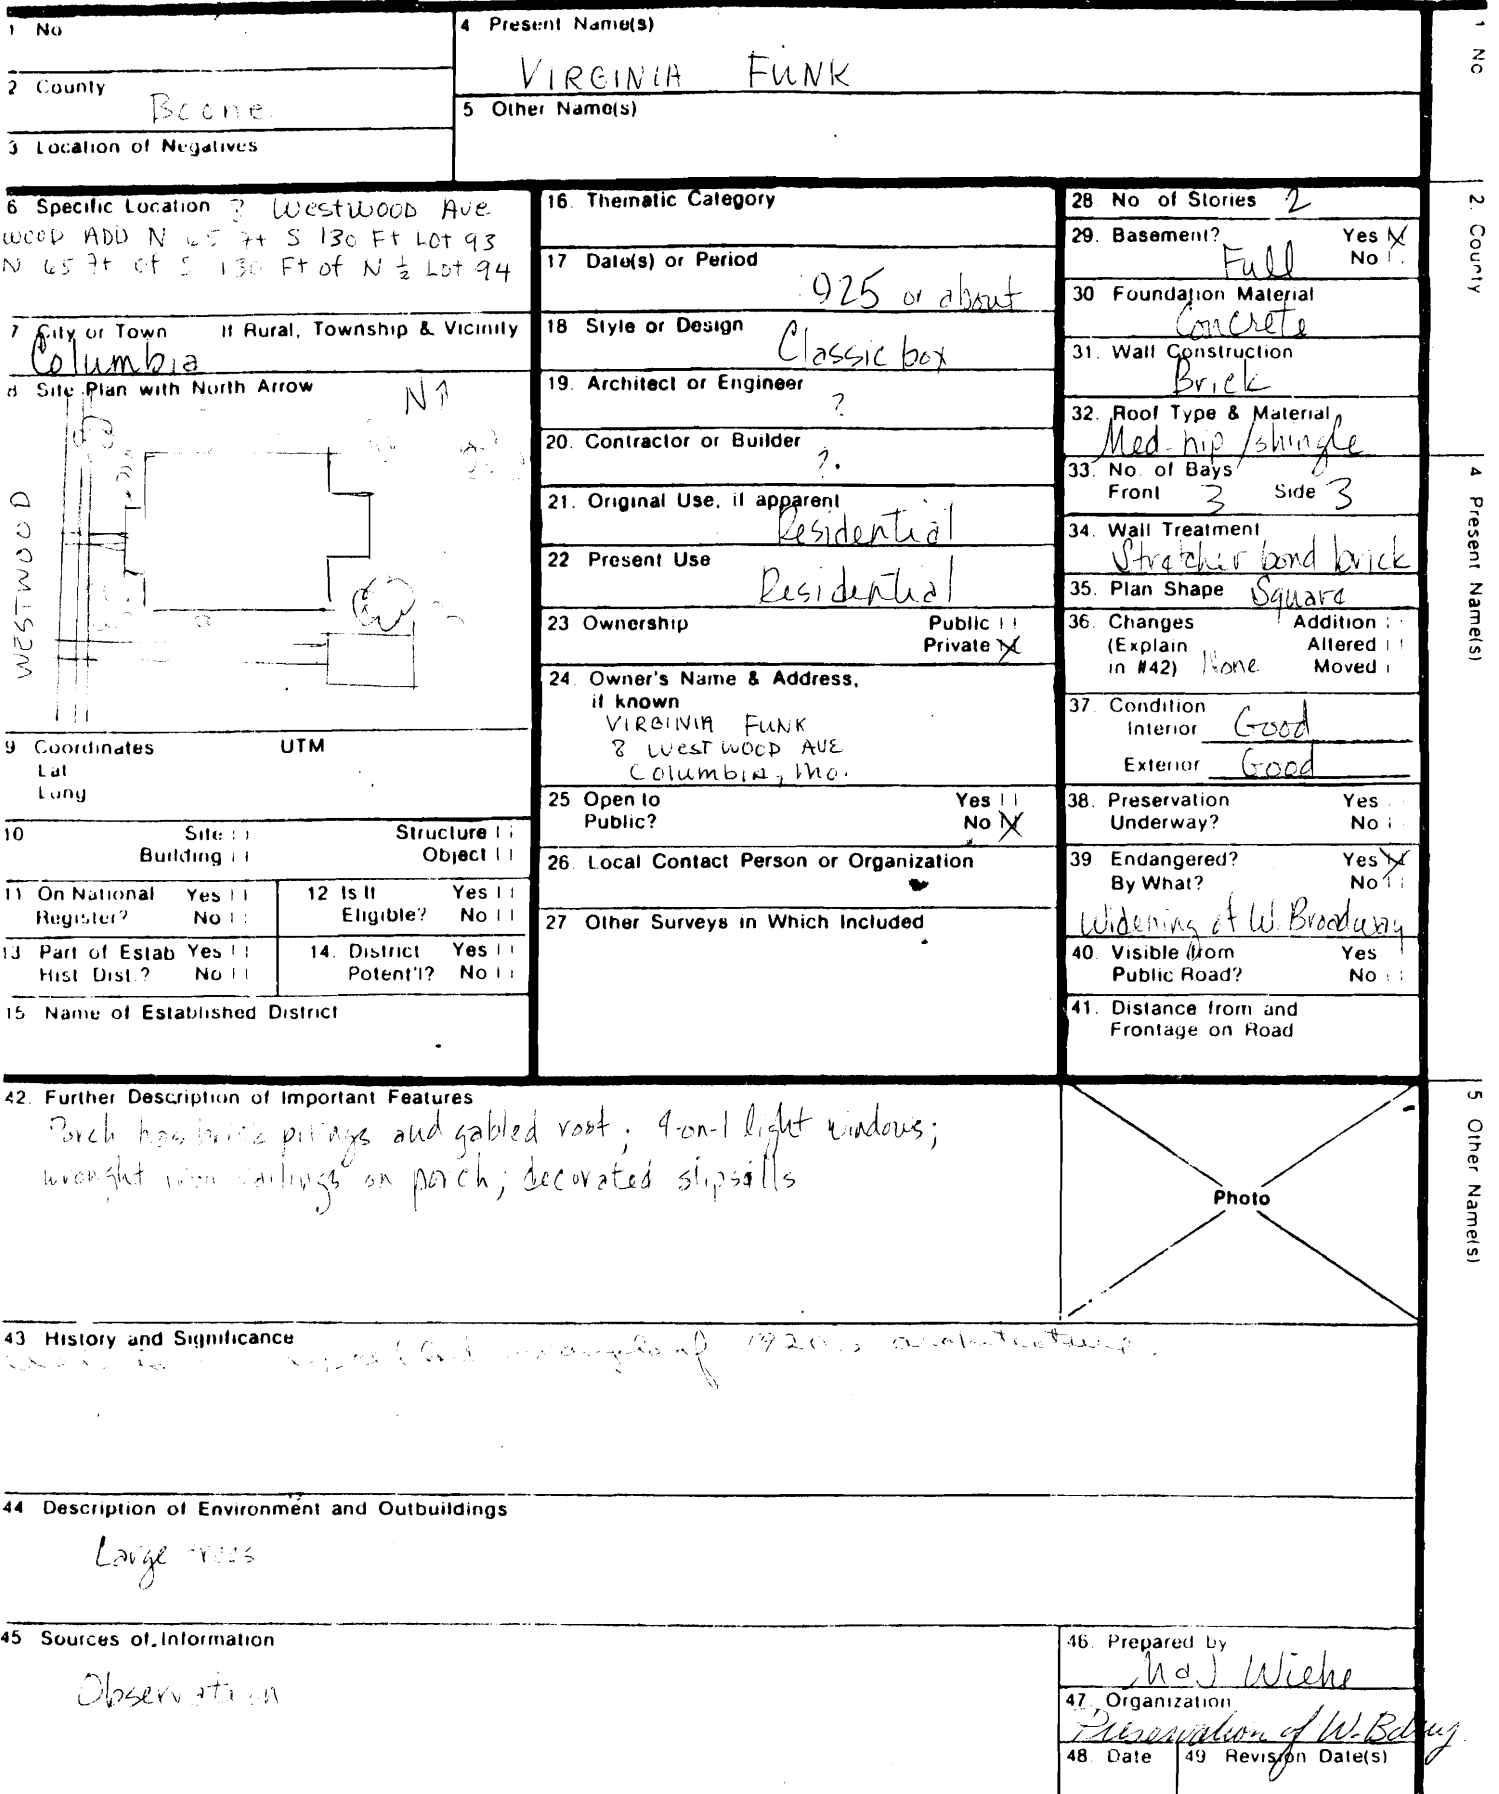 1 No
4 Present Name(s)
VIRGINIA FUNK
2 County
Boone
5 Other Name(s)
3 Location of Negatives
6 Specific Location ? WESTWOOD AVE
WOOD ADD N 65 Ft S 130 Ft LOT 93
N 65 Ft of S 130 Ft of N ½ Lot 94
7 City or Town If Rural, Township & Vicinity
Columbia
8 Site Plan with North Arrow
N↑
WESTWOOD
9 Coordinates UTM
Lat
Long
10 Site Structure
Building Object
11 On National Register? Yes No
12 Is It Eligible? Yes No
13 Part of Estab Hist Dist.? Yes No
14. District Potent'l? Yes No
15 Name of Established District
16. Thematic Category
17 Date(s) or Period
925 or about
18 Style or Design
Classic box
19. Architect or Engineer
?
20. Contractor or Builder
?.
21. Original Use, if apparent
Residential
22 Present Use
Residential
23 Ownership Public
Private X
24. Owner's Name & Address,
if known
VIRGINIA FUNK
8 WESTWOOD AVE
Columbia, Mo.
25 Open to Public? Yes
No X
26. Local Contact Person or Organization
27 Other Surveys in Which Included
28 No of Stories 2
29. Basement? Yes X
Full No
30 Foundation Material
Concrete
31. Wall Construction
Brick
32. Roof Type & Material
Med-hip/shingle
33. No. of Bays
Front 3 Side 3
34. Wall Treatment
Stretcher bond brick
35. Plan Shape Square
36. Changes Addition
(Explain Altered
in #42) None Moved
37. Condition
Interior Good
Exterior Good
38. Preservation Yes
Underway? No
39. Endangered? Yes X
By What? No
Widening of W. Broadway
40. Visible from Yes
Public Road? No
41. Distance from and
Frontage on Road
42. Further Description of Important Features
Porch has brick pilings and gabled roof; 4-on-1 light windows;
wrought iron railings on porch; decorated slipsills
Photo
43 History and Significance
example of 1920's architecture.
44 Description of Environment and Outbuildings
Large trees
45 Sources of Information
Observation
46. Prepared by
Wiehe
47. Organization
Preservation of W. Bdwy
48. Date 49 Revision Date(s)
1 No
2. County
4 Present Name(s)
5 Other Name(s)